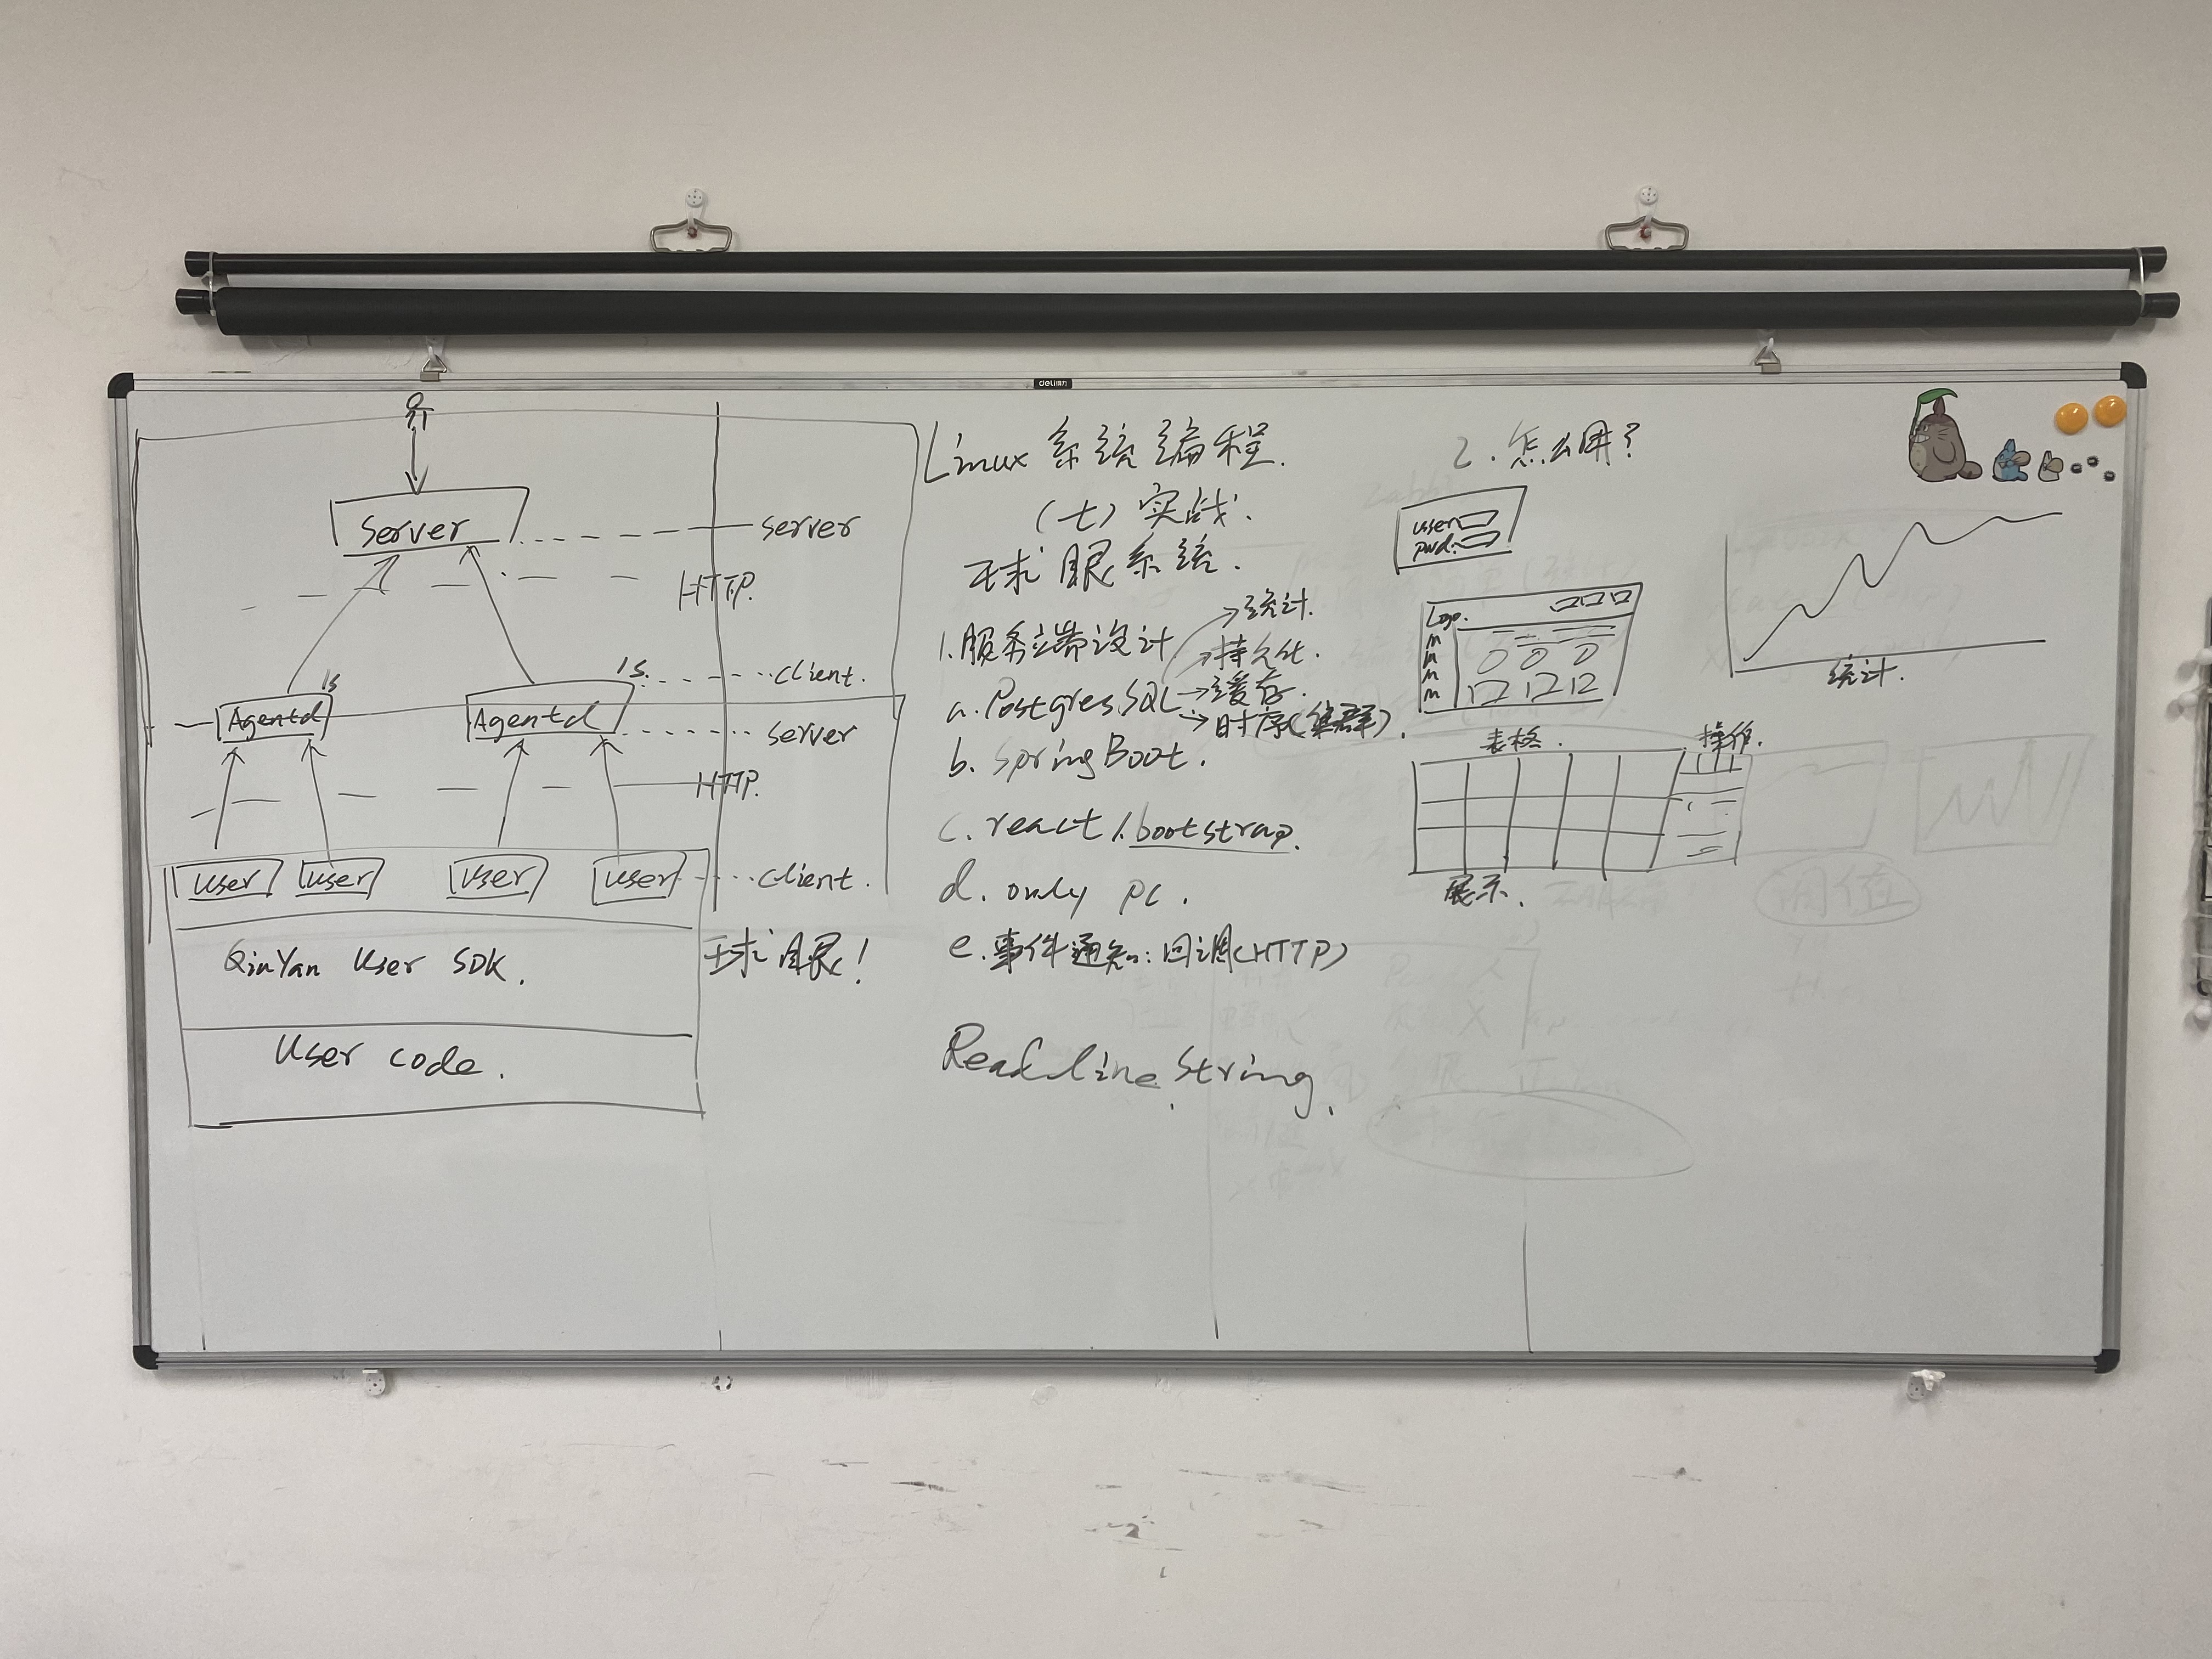 deli得力
Server
server
HTTP.
1s
1s.
client.
Agentd
Agentd
server
HTTP.
user
user
user
user
client.
QinYan User SDK.
球眼!
User code.
Linux 系统编程.
(七) 实战.
球眼系统.
1.服务端设计
→统计.
→持久化.
a.PostgresSQL→缓存.
→时序(集群).
b. SpringBoot.
c. react /.bootstrap.
d. only pc.
e.事件通知:回调(HTTP)
Readline String.
2.怎么用?
user
pwd.
Logo.
统计.
表格.
操作.
展示.
阈值